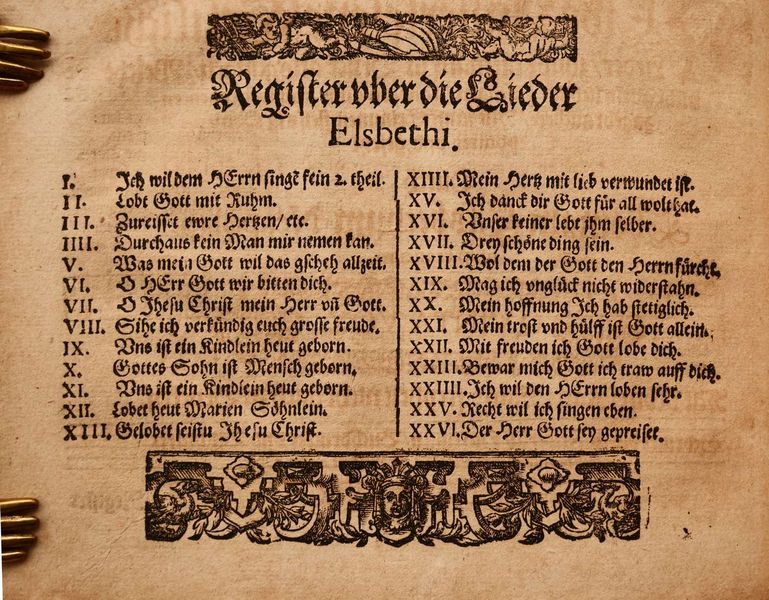 Register vber die Lieder
Elsbethi.
I. Ich wil dem HErrn singẽ fein 2. theil.
II. Lobt Gott mit Ruhm.
III. Zureisset ewre Hertzen/ etc.
IIII. Durchaus kein Man mir nemen kan.
V. Was mein Gott wil das gscheh allzeit.
VI. O HErr Gott wir bitten dich.
VII. O Jhesu Christ mein Herr vñ Gott.
VIII. Sihe ich verkündig euch grosse freude.
IX. Vns ist ein Kindlein heut geborn.
X. Gottes Sohn ist Mensch geborn.
XI. Vns ist ein Kindlein heut geborn.
XII. Lobet heut Marien Söhnlein.
XIII. Gelobet seistu Jhesu Christ.
XIIII. Mein Hertz mit lieb verwundet ist.
XV. Ich danck dir Gott für all wolthat.
XVI. Vnser keiner lebt jhm selber.
XVII. Drey schöne ding sein.
XVIII. Wol dem der Gott den Herrn fürcht.
XIX. Mag ich vnglück nicht widerstahn.
XX. Mein hoffnung Ich hab stetiglich.
XXI. Mein trost vnd hülff ist Gott allein.
XXII. Mit freuden ich Gott lobe dich.
XXIII. Bewar mich Gott ich traw auff dich.
XXIIII. Ich wil den HErrn loben sehr.
XXV. Recht wil ich singen eben.
XXVI. Der Herr Gott sey gepreiset.